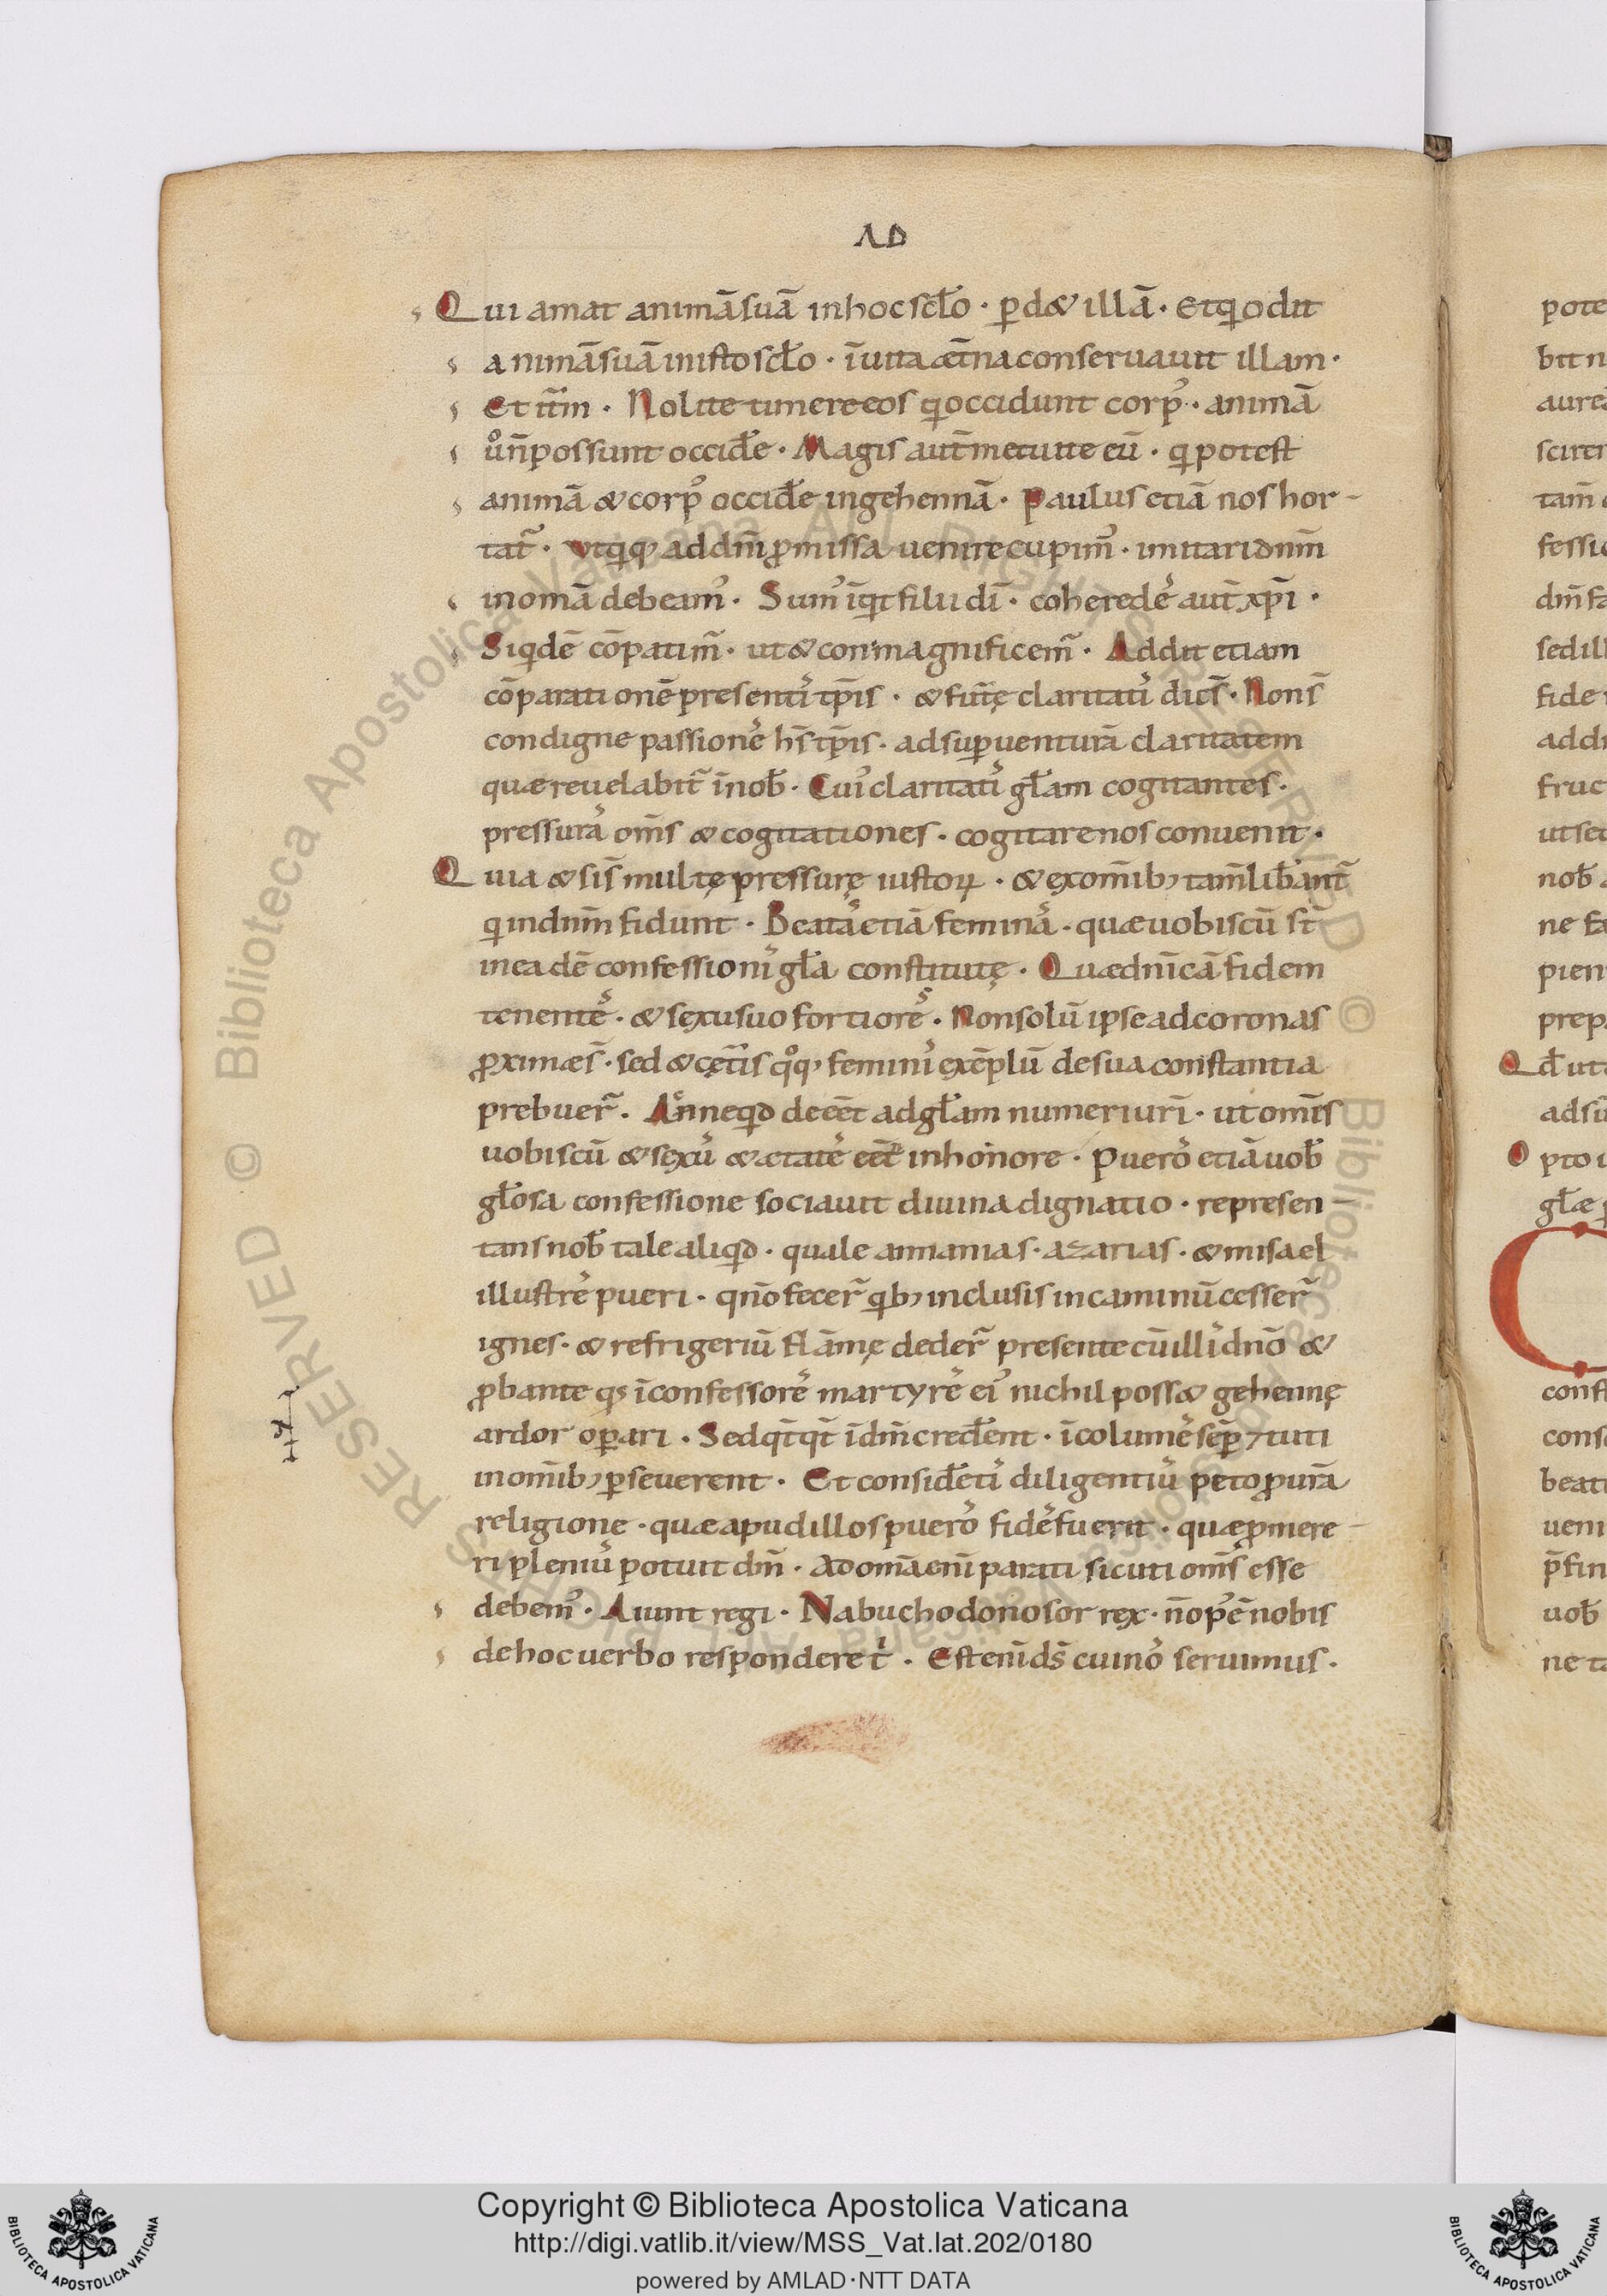 AD
Qui amat animā suā in hoc scło · ꝑd& illā · Et qi odit
animā suā in isto scło · ī uita æt̄na conseruauit illam ·
Et it̄m · Nolite timere eos qi occidunt corpꝰ · animā
uͦ n̄ possunt occiđe · Magis aut̄ metuite eū · qi potest
animā & corpꝰ occiđe in gehennā · Paulus etiā nos hor-
tat᷑ · ut qiqi ad dn̄i ꝓmissa uenire cupimꝰ · imitari dn̄m
in om̄a debeamꝰ · Sumꝰ īqit filii dī · coheredeˢ aut̄ xp̄i ·
Siqidē cōpatim᷑ · ut & conmagnificem᷑ · Addit etiam
cōparationē presentiˢ tp̄is · & fut̄ę claritatiˢ dicēs · Non s̄t
condigne passioneˢ hꝰ tp̄is · ad suꝑuenturā claritatem
quæ reuelabit᷑ ī nob̄ · Cuiꝰ claritatiˢ gł̄am cogitantes ·
pressuraˢ om̄s & cogitationes · cogitare nos conuenit ·
Quia & si s̄t multę pressurę iustoꝝ · & ex om̄ibꝫ tam̄ lib̄ant᷑
qi in dn̄m fidunt · Beataˢ etiā feminaˢ · quæ uobiscū s̄t
in eadē confessioniˢ gł̄a constitutę · Quæ dn̄icā fidem
tenenteˢ · & sexu suo fortioreˢ · Non solū ipse ad coronas
ꝓximæ s̄t · sed & cęt̄is qͦqꝫ feminiˢ exēplū de sua constantia
prebuer᷑ · Ac̄ ne qid deēēt ad gł̄am numeri uri · ut om̄is
uobiscū & sexuˢ & ætateˢ ēēt in honore · Pueroˢ etiā uob̄
gł̄osa confessione sociauit diuina dignatio · represen-
tans nob̄ tale aliqid · quale annanias · azarias · & misael
illustreˢ pueri · qn̄o fecer᷑ qibꝫ inclusis in caminū cesser᷑
ignes · & refrigeriū flāmę deder᷑ presente cū illiˢ dn̄o &
ꝓbante qꝫ ī confessoreˢ martyreˢ eiꝰ nichil poss& gehennę
ardor oꝑari · Sed qi t̄ qi t̄ ī dm̄ cređent · īcolumeˢ sēꝑ ⁊ tuti
in om̄ibꝫ ꝑseuerent · Et consiđetiˢ diligentiuˢ peto ꝓ ur̄a
religione · quæ apud illos pueroˢ fideˢ fuerit · quæ ꝓmere-
ri pleniuˢ potuit dm̄ · Ad om̄a eni parati sicuti om̄s esse
debemꝰ · Aiunt regi · Nabuchodonosor rex · n̄ opꝰ ē nobis
de hoc uerbo respondere tⁱ · Est eni ds̄ cui noˢ seruimus ·
pote
bit n
aure
scire
tam̄
fessi
dm̄ fa
sed ill
fide
add
fruc
ut se
nob̄
ne fa
pien
prep
Qđ ut
ad su
Opto
gł̄æ
C
conf
cons
beat
ueni
p̄fin
uob̄
ne ta
Copyright © Biblioteca Apostolica Vaticana
http://digi.vatlib.it/view/MSS_Vat.lat.202/0180
powered by AMLAD·NTT DATA